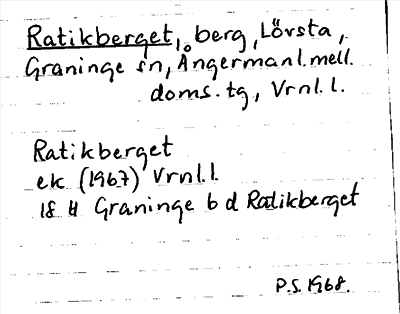 Ratikberget, berg, Lövsta,
Graninge sn, Ångermanl. mell.
doms. tg, Vrnl. l.
Ratikberget
ek (1967) Vrnl. l.
18 H Graninge b d Ratikberget
P.S. 1968.